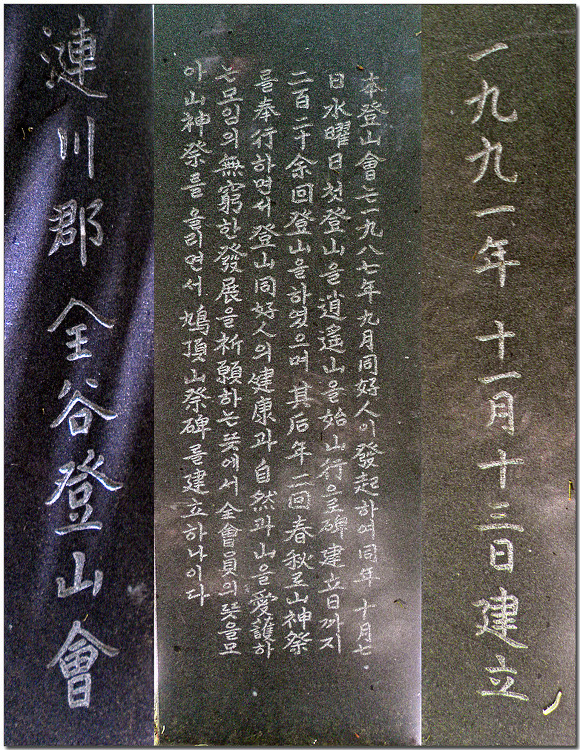 一九九一年 十一月十三日 建立
本登山會는 一九八七年 九月 同好人이 發起하여 同年 十月七
日 水曜日 첫登山을 逍遙山을 始山行으로 碑建立日까지
二百二十余回 登山을 하였으며 其后年二回 春秋로 山神祭
를 奉行하면서 登山同好人의 健康과 自然과 山을 愛護하
는 모임의 無窮한 發展을 祈願하는 뜻에서 全會員의 뜻을 모
아 山神祭를 올리면서 鳩頂山祭碑를 建立하나이다
漣川郡 全谷登山會